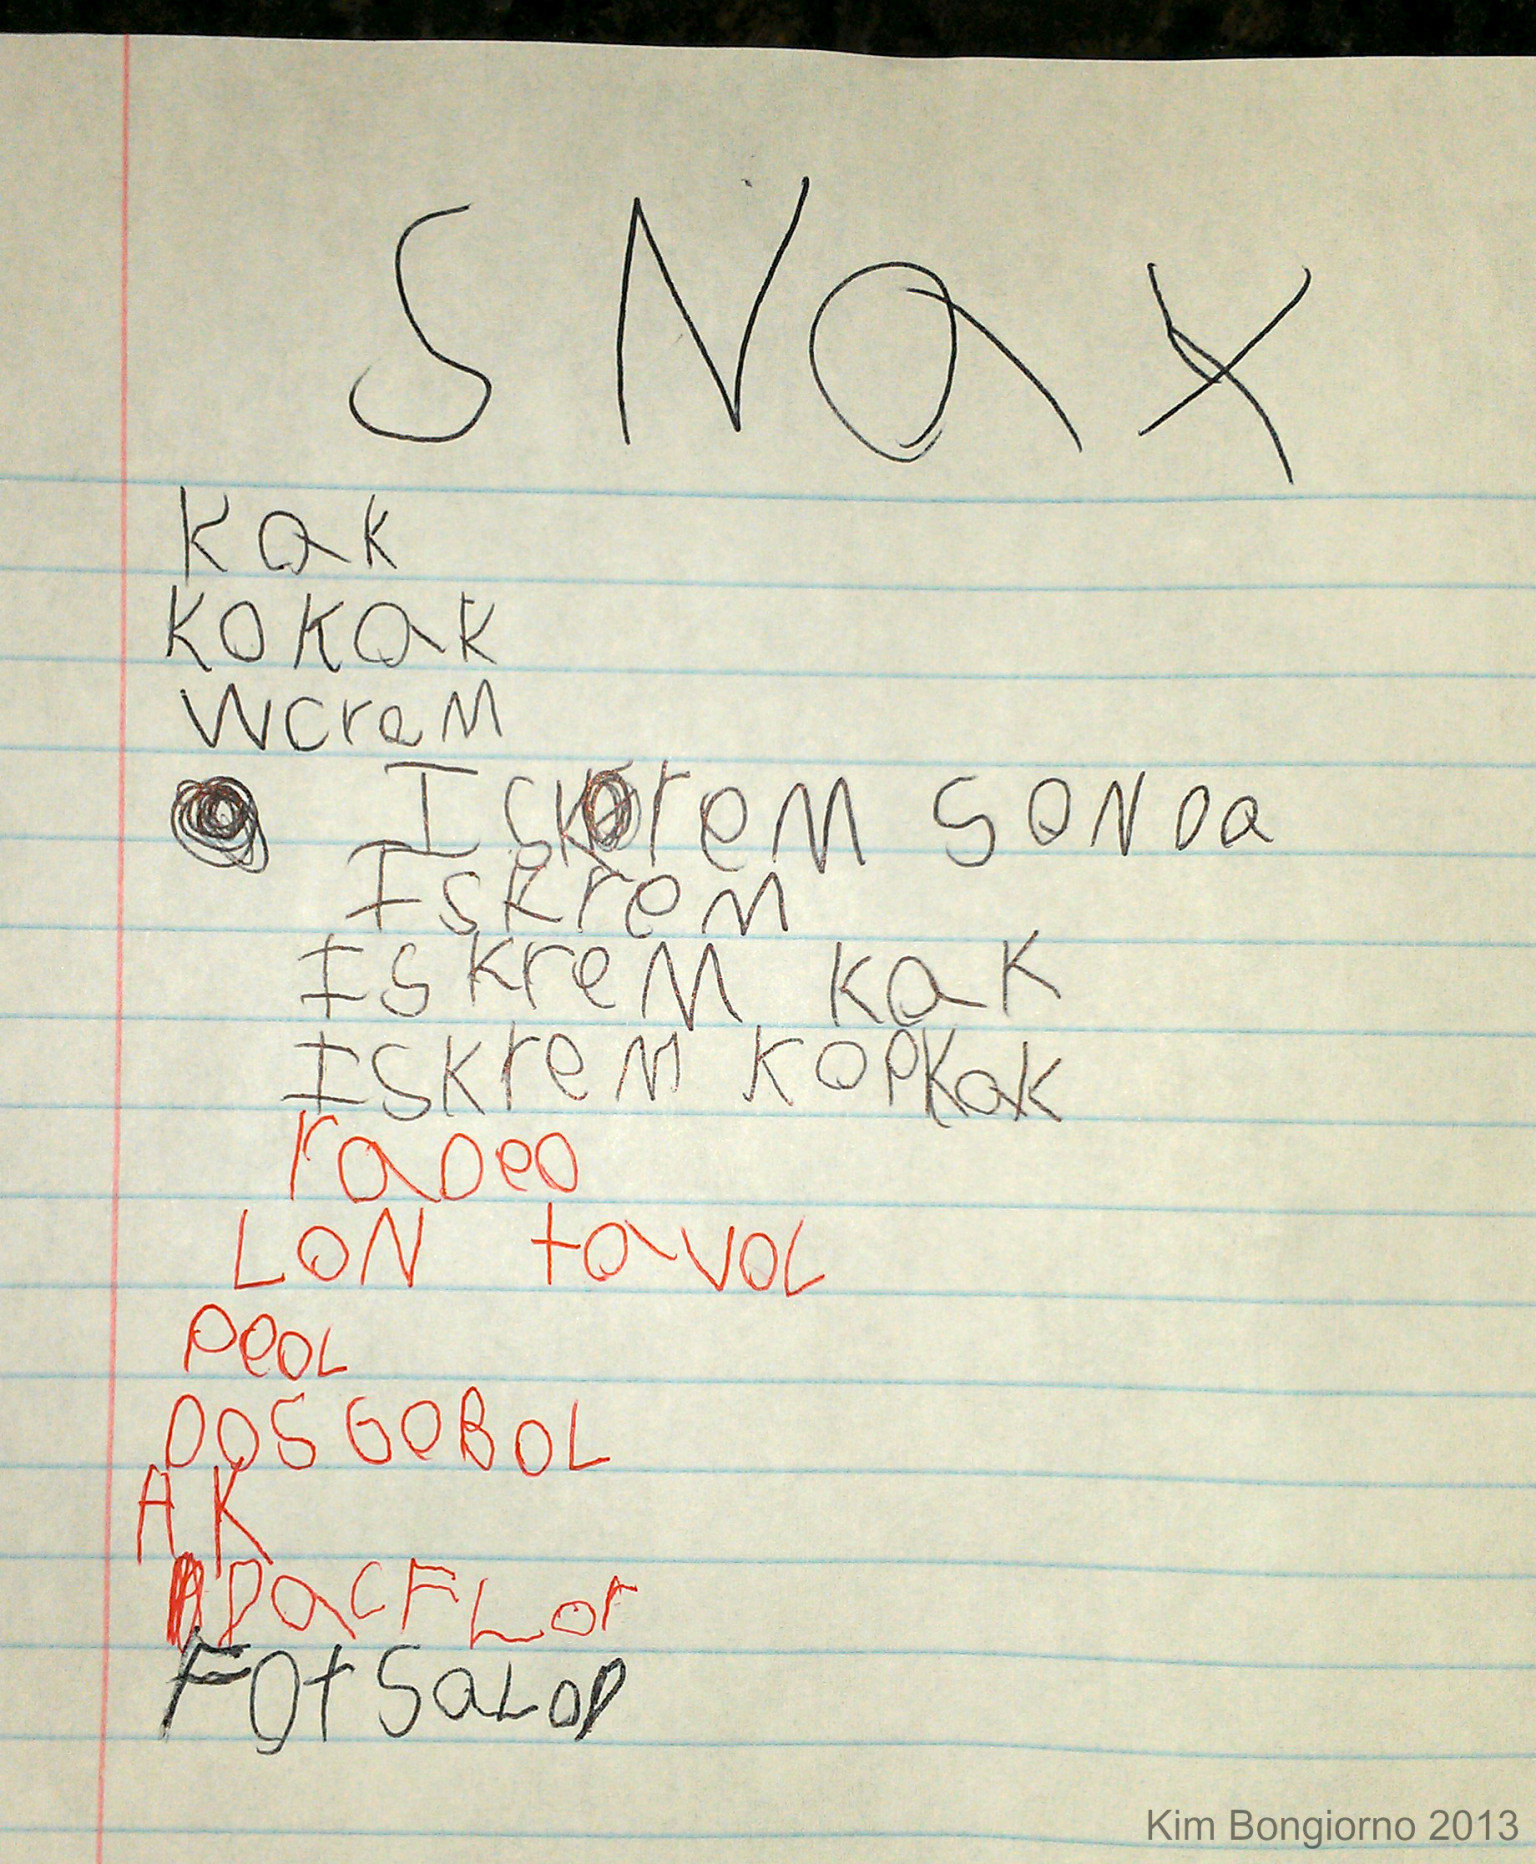 SNax
Kak
KoKaK
WcreM
IsKreM SoNDa
IsKreM
IsKreM KaK
IsKreM KopKaK
raDeo
LoN tavoL
PeoL
DosGeBoL
AK
DacFLor
FOtSaLoD
Kim Bongiorno 2013